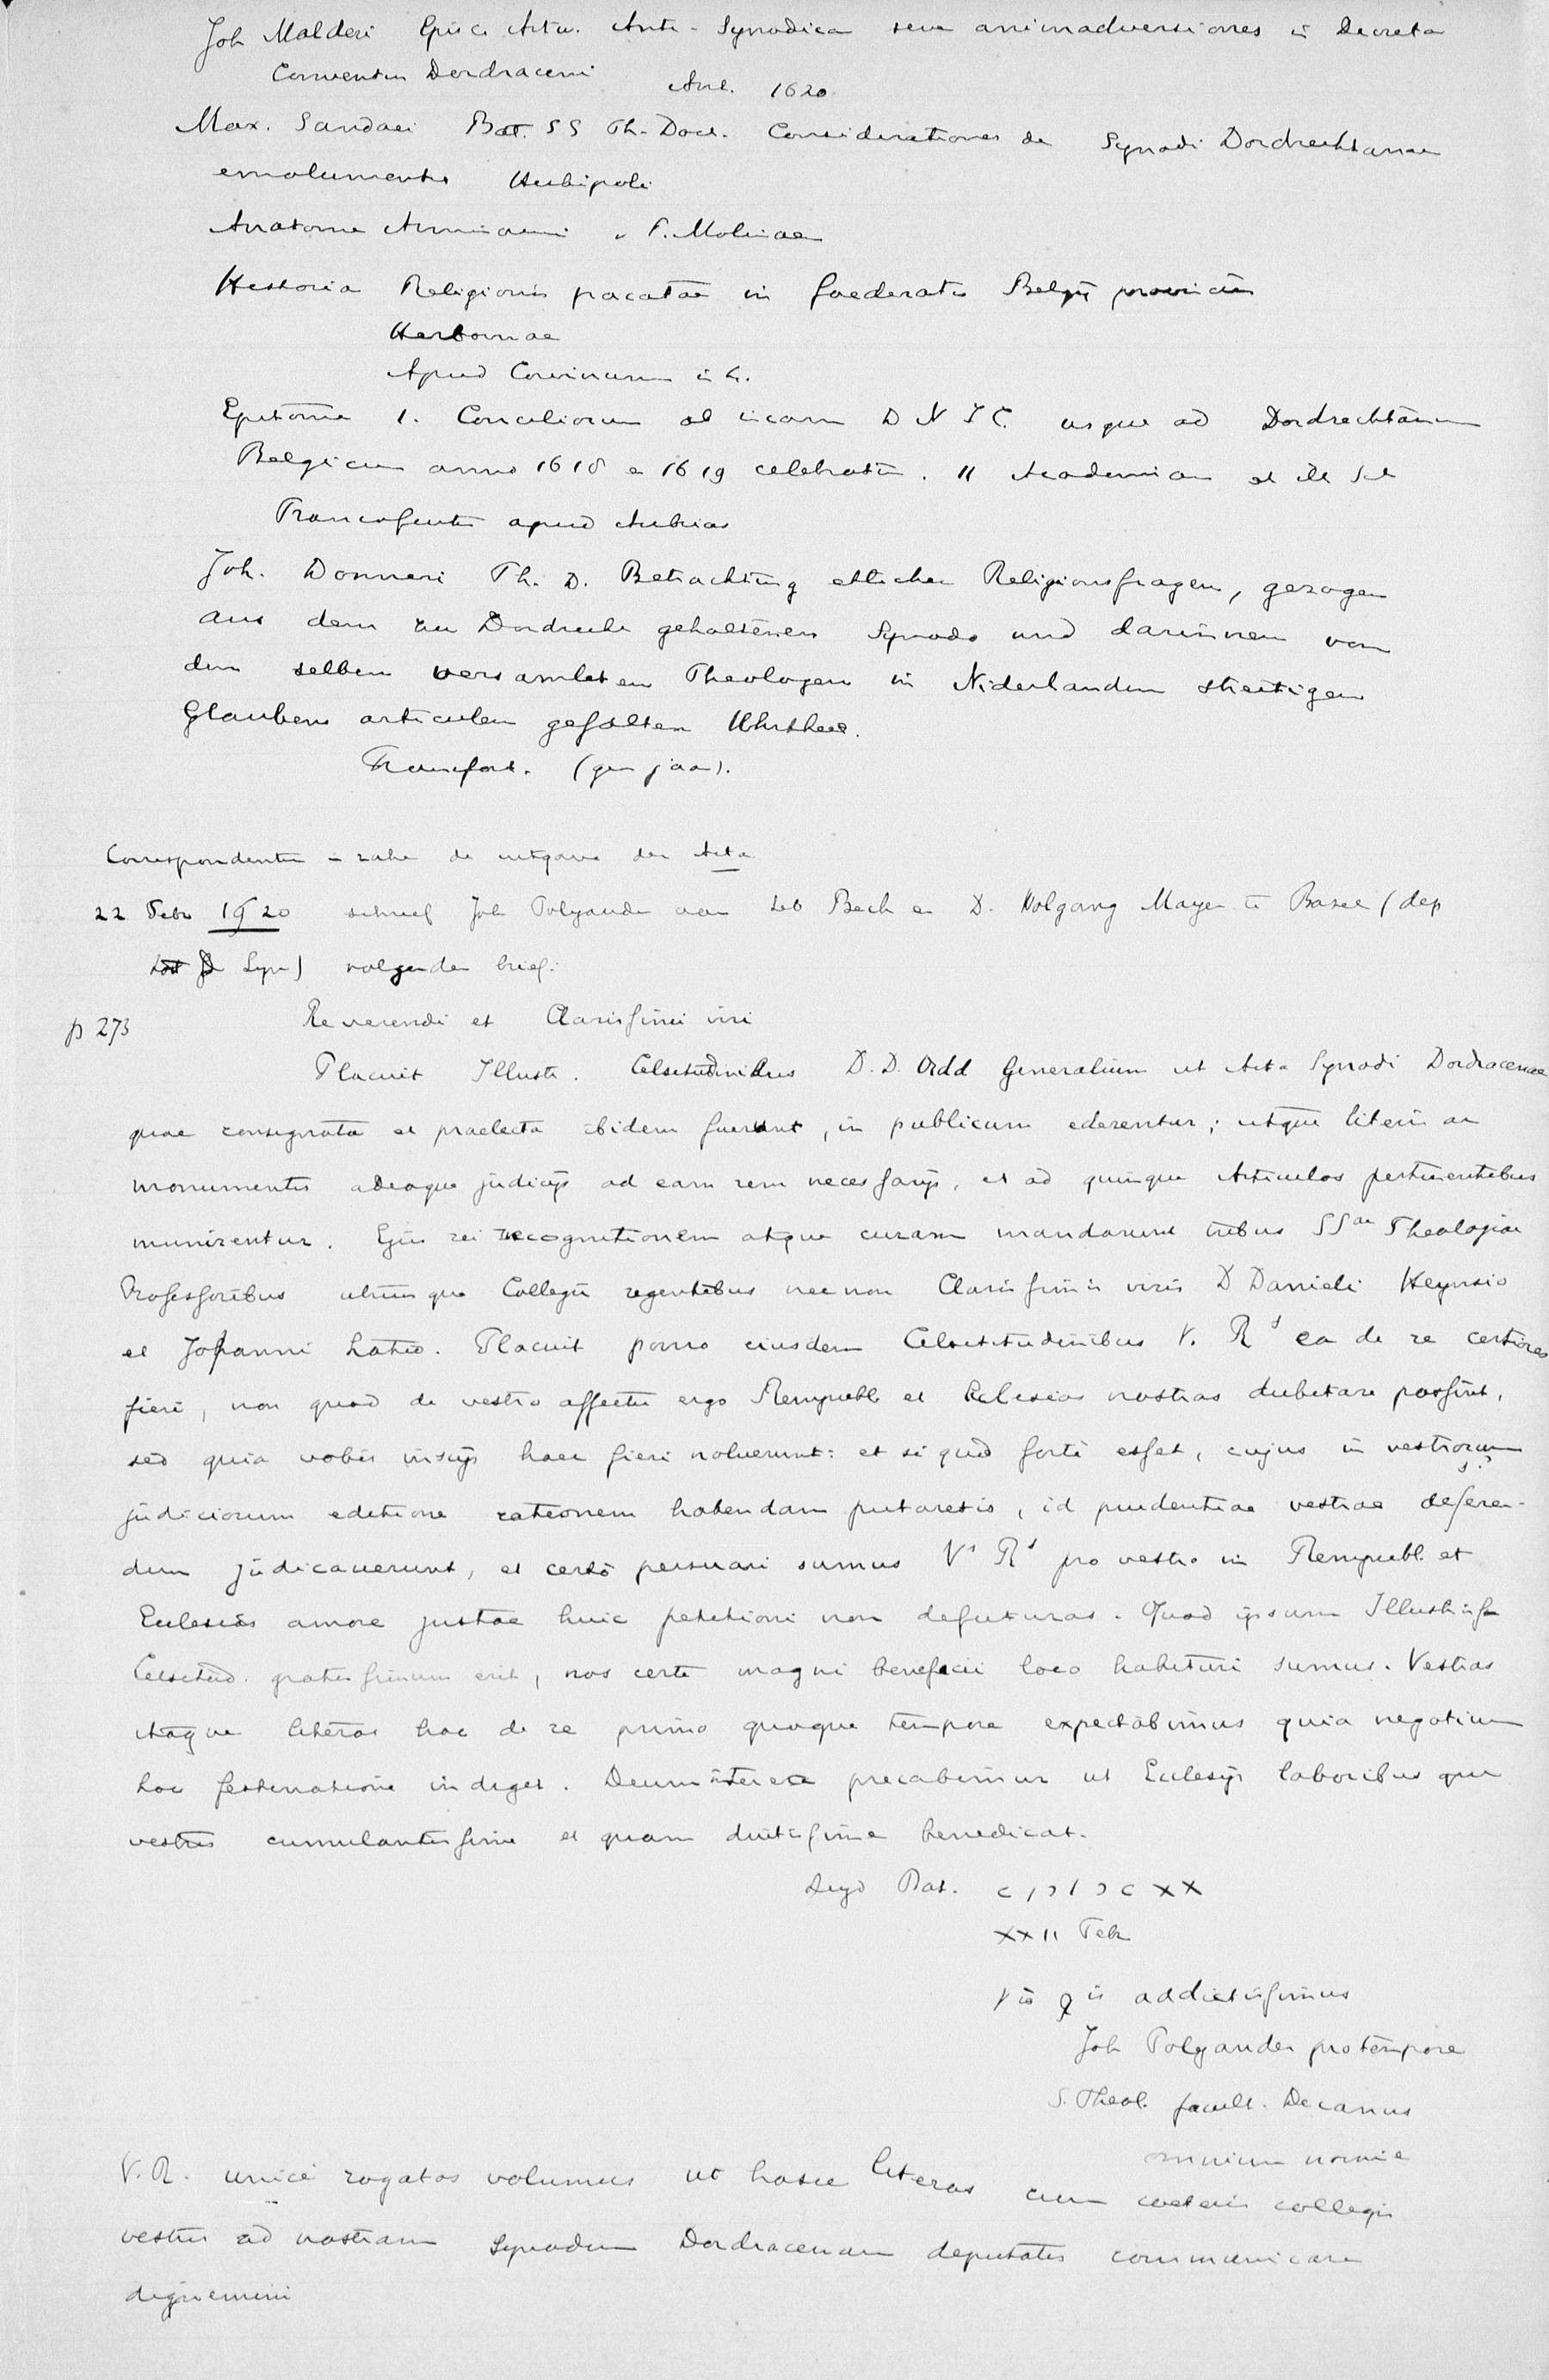 Joh Malderi Episc Antw. Anti-Synodica seu animadversiones in Decreta
Conventus Dordraceni Antv. 1620
Max. Sandaei Bat. SS Th. Doct. Considerationes de Synodi Dordrechtanae
emolumentis Herbipoli
Anatome Arminianismi P. Molinaei
Historia Religionis pacatae in foederatis Belgii provinciis
Herbornae
Apud Corvinum in 4.
Epitome 1. Conciliorum ab incarn D N J C. usque ad Dordrechtanum
Belgicum anno 1618 e 1619 celebratum. 11 Academiarum et
Francofurti apud Aubrios
Joh. Donneri Th. D. Betrachtung etlicher Religionsfragen, gezogen
aus dem zu Dordrecht gehaltenen Synodo und darinnen von
den selben versamleten Theologen in Niderlanden streitigen
Glaubens articulen gefälten Uhrtheil.
Francfort. (geen jaar).
Correspondentie in zake de uitgave der Acta
22 Febr 1620 schreef Joh Polyander aan Seb Beck en D. Wolfgang Mayer te Basel (dep
Syn) volgenden brief:
p 273 Reverendi et Clarissimi viri
Placuit Illustr. Celsitudinibus D. D. Ordd Generalium ut Acta Synodi Dordracenae
quae consignata et praelecta ibidem fuerunt, in publicum ederentur; utque literis ac
monumentis adeoque judicijs ad eam rem necessarijs, et ad quinque Articulos pertinentibus
munirentur. Ejus rei recognitionem atque curam mandarunt tribus SSae Theologiae
Professoribus utriusque Collegii regentibus necnon Clarissimis viris D Danieli Heynsio
et Johanni Latio. Placuit porro eiusdem Celsitudinibus V. Rs ea de re certiores
fieri, non quod de vestro affectu ergo Rempubl et Ecclesias nostras dubitare possint,
sed quia vobis inscijs haec fieri noluerunt: et si quid forte esset, cujus in vestrorum
judiciorum editione rationem habendam putaretis, id prudentiae vestrae deferen-
dum judicaverunt, et certo persuasi sumus Vs Rs pro vestro in Rempubl. et
Ecclesias amore justae huic petitioni non defuturas. Quod ipsum Illustriss
Celsitud. gratissimum erit, nos certe magni beneficii loco habituri sumus. Vestras
itaque literas hac de re primo quoque tempore expectabimus quia negotium
hoc festinatione indiget. Deum interea precabimur ut Ecclesijs laboribus que
vestris cumulantissime et quam diutissime benedicat.
Lugd Bat. c I ɔ I ɔ c XX
XXII Feb
addictissimus
Joh Polyander pro tempore
S. Theol. facult. Decanus
omnium nomine
V. R. unice rogatos volumus ut hasce literas cum caeteris collegis
vestris ad nostram Synodum Dordracenam deputatis communicare
dignemini